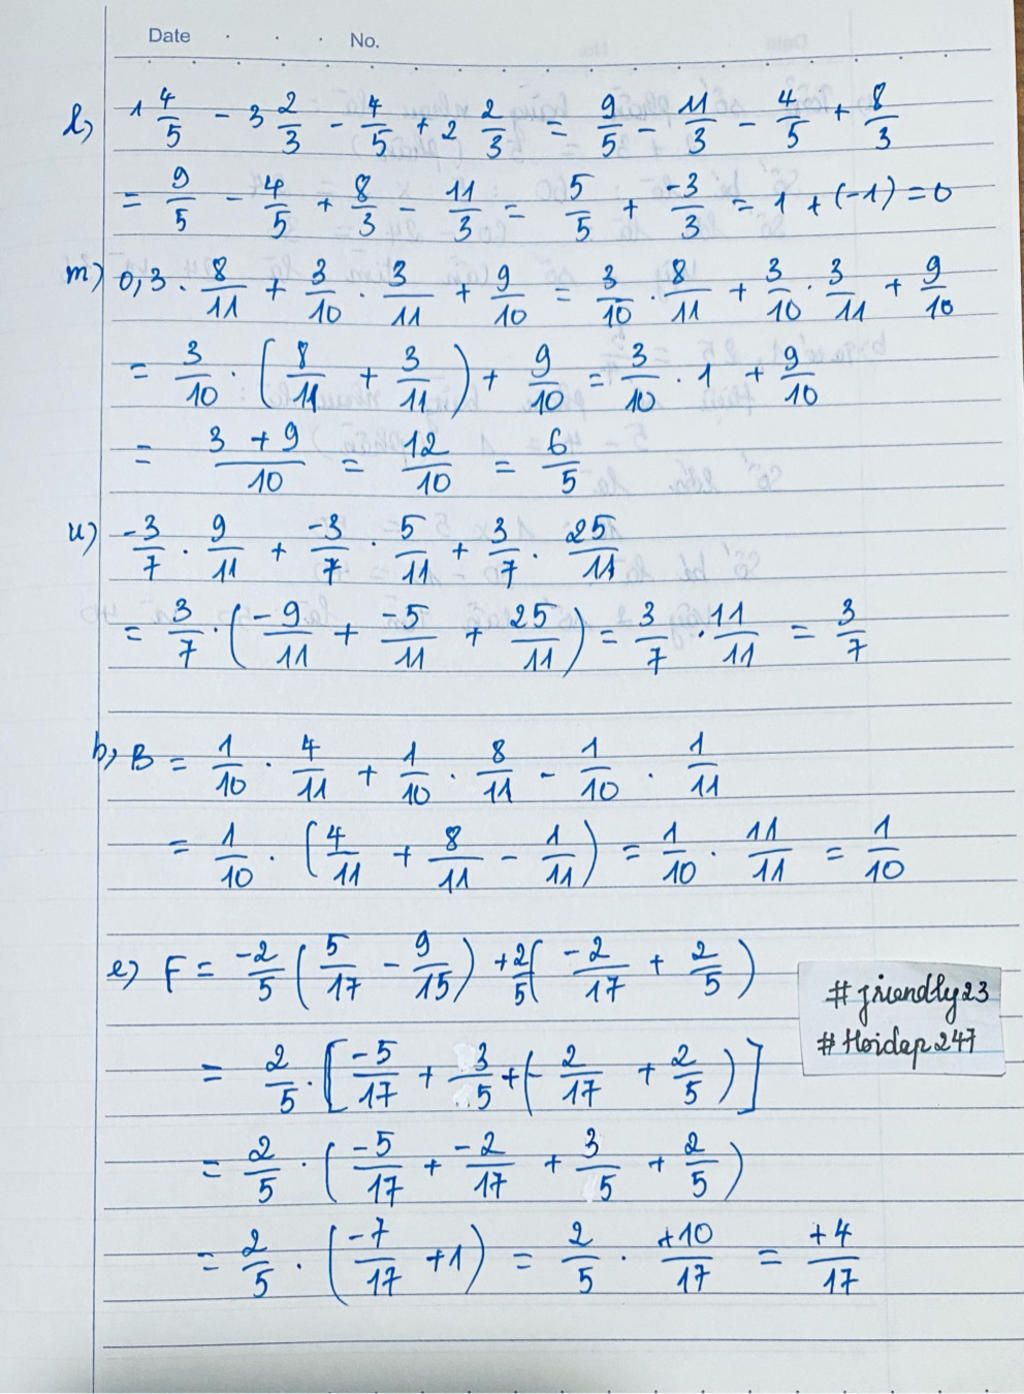 Date . . . No.
l, 1 4/5 - 3 2/3 - 4/5 + 2 2/3 = 9/5 - 11/3 - 4/5 + 8/3
= 9/5 - 4/5 + 8/3 - 11/3 = 5/5 + -3/3 = 1 + (-1) = 0
m) 0,3 . 8/11 + 3/10 . 3/11 + 9/10 = 3/10 . 8/11 + 3/10 . 3/11 + 9/10
= 3/10 . (8/11 + 3/11) + 9/10 = 3/10 . 1 + 9/10
= 3 + 9/10 = 12/10 = 6/5
u) -3/7 . 9/11 + -3/7 . 5/11 + 3/7 . 25/11
= 3/7 . (-9/11 + -5/11 + 25/11) = 3/7 . 11/11 = 3/7
b, B = 1/10 . 4/11 + 1/10 . 8/11 - 1/10 . 1/11
= 1/10 . (4/11 + 8/11 - 1/11) = 1/10 . 11/11 = 1/10
e) F = -2/5 (5/17 - 9/15) + 2/5 (-2/17 + 2/5)
#friendly23
#Hoidap247
= 2/5 . [-5/17 + 3/5 + (- 2/17 + 2/5)]
= 2/5 . (-5/17 + -2/17 + 3/5 + 2/5)
= 2/5 . (-7/17 + 1) = 2/5 . +10/17 = +4/17